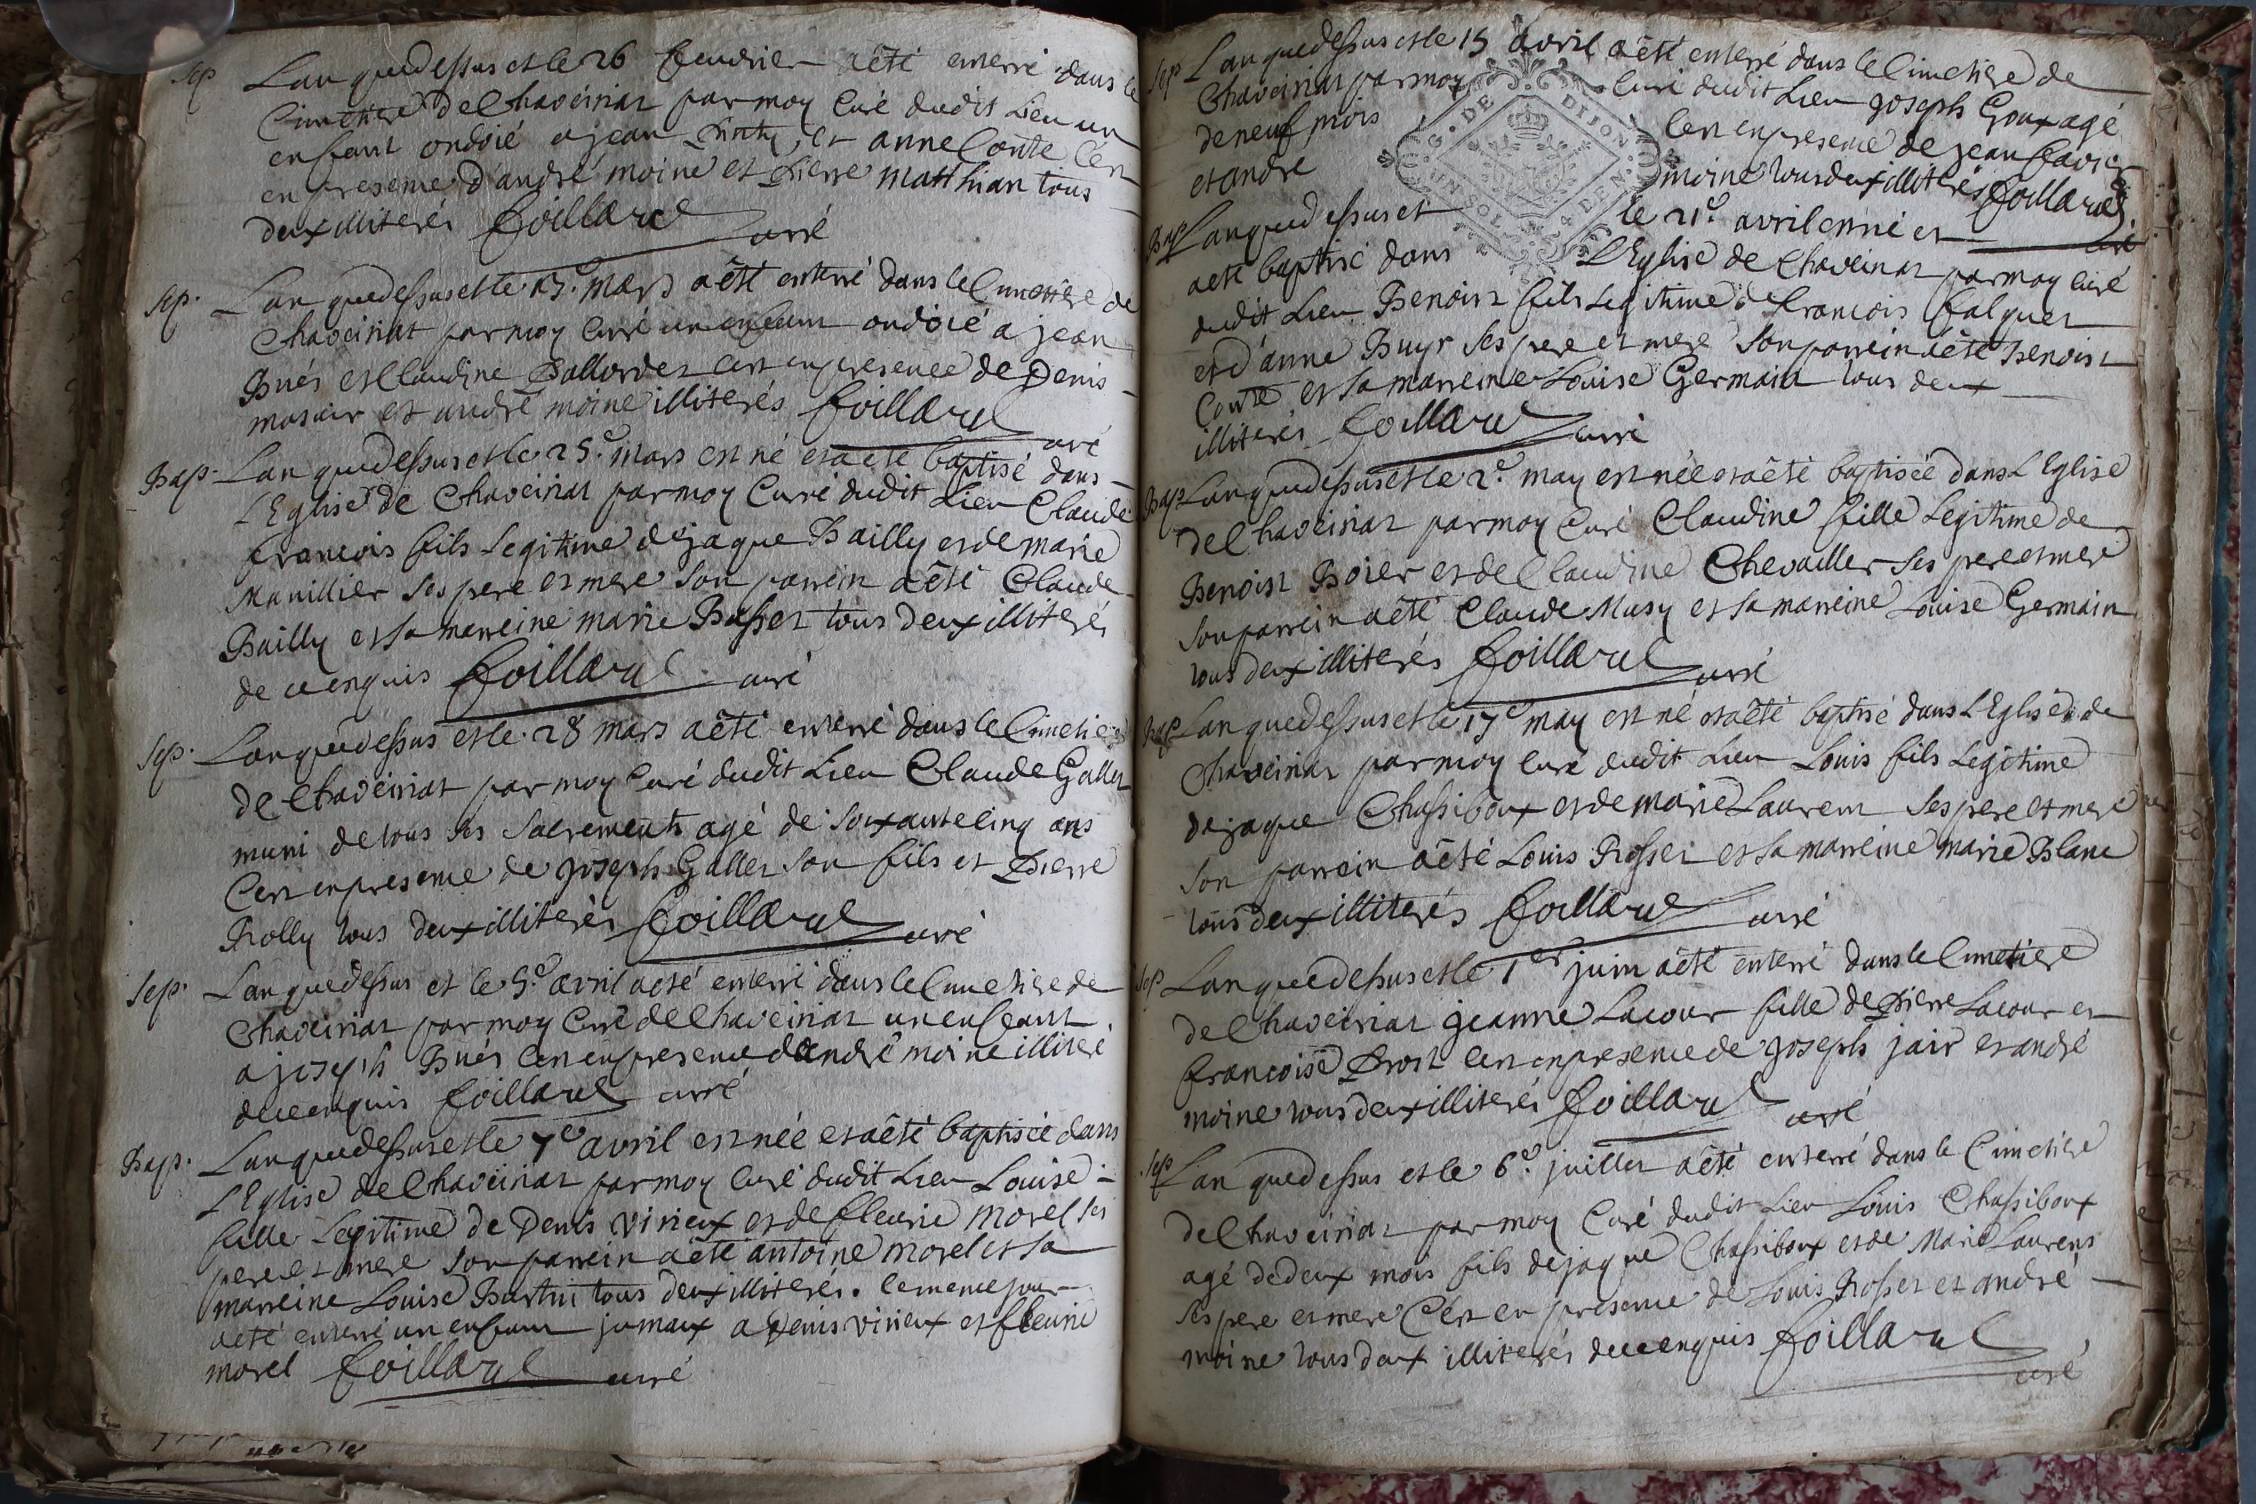 Sep Lan quedessus et le 26 feuvrier a êté enterré dans le
Cimetiere de Chaveiriat par moy Curé dudit Lieu un
enfant ondoié a jean et anne Conte C'ést
en presence d'andré moine et Pierre Matthian tous
deux illiterés foillard curé
Sep. Lan quedessus et le mars a êté enterré dans le Cimetiere de
Chaveiriat par moy Curé un enfant ondoié a jean
Bués et Claudine Pallordet C'est en presence de Denis
masuir et andré moine illiterés foillard curé
Bap. Lan quedessus et le 25.e mars est né et a eté baptisé dans
L'Eglise de Chaveiriat par moy Curé dudit Lieu Claude
francois fils Legitime de jaque Bailly et de marie
Manillier ses pere et mere son parrein a êté Claude
Bailly et sa marreine marie Basset tous deux illiterés
de ce enquis foillard curé
Sep. Lan quedessus et le 28 mars a êté enterré dans le Cimetiere
de Chaveiriat par moy Curé dudit Lieu Claude Gallet
muni de tous ses Sacrements agé de soixante cinq ans
C'est en presence de joseph Gallet son fils et Pierre
Rolly tous deux illiterés foillard curé
Sep. Lan quedessus et le 5.e avril a eté enterré dans le Cimetiere de
Chaveiriat par moy Curé de Chaveiriat un enfant
a joseph Bués C'est en presence d'andré moine illiteré
de ce enquis foillard curé
Bap. Lan quedessus et le 7e avril est née et a êté baptisée dans
L'Eglise de Chaveiriat par moy Curé dudit Lieu Louise
fille Legitime de Denis virieux et de fleurie Morel ses
pere et mere son parrein a êté antoine Morel et sa
marreine Louise Burtin tous deux illiterés. le meme jour
a eté enterré un enfant jumaux a Denis virieux et fleurie
morel foillard curé
Sep Lan quedessus et le 15 avril a êté enterré dans le Cimetiere de
Chaveiriat par moy Curé dudit Lieu joseph Goux agé
de neuf mois C'est en presence de jean
et andré moine tous deux illiterés foillard curé
G. DE DIJON
UN SOL 4 DEN.
Bap Lan quedessus et le 21e avril est né et
a eté baptisé dans L'Eglise de Chaveiriat par moy curé
dudit Lieu Benoist fils Legitime de francois falquet
et d'anne Buyr ses pere et mere son parrein a êté Benoist
Conte et sa marreine Louise Germain tous deux
illiterés foillard curé
Bap Lan quedessus et le 2.e may est née et a êté baptisée dans L'Eglise
de Chaveiriat par moy Curé Claudine fille Legitime de
Benoist Boier et de Claudine Chevailler ses pere et mere
son parrein a êté Claude Musy et sa marreine Louise Germain
tous deux illiterés foillard curé
Bap Lan quedessus et le 17e may est né et a êté baptisé dans L'Eglise de
Chaveiriat par moy Curé dudit Lieu Louis fils Legitime
de jaque Chassiboux et de marie Laurent ses pere et mere
son parrein a êté Louis Rosset et sa marreine marie Blanc
tous deux illiterés foillard curé
Sep Lan quedessus et le 1er juin a êté enterré dans le Cimetiere
de Chaveiriat jeanne Lacour fille de Pierre Lacour et
francoise Prost C'est en presence de joseph jair et andré
moine tous deux illiterés foillard curé
Sep Lan quedessus et le 6.e juillet a êté enterré dans le Cimetiere
de Chaveiriat par moy Curé dudit Lieu Louis Chassiboux
agé de deux mois fils de jaque Chassiboux et de Marie Laurens
ses pere et mere C'ést en presence de Louis Rosset et andré
moine tous deux illiterés de ce enquis foillard
curé